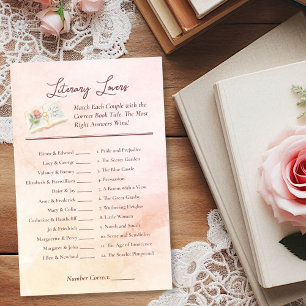 Literary Lovers
Match Each Couple with the
Correct Book Title. The Most
Right Answers Wins!
Elinor & Edward ______ 1. Pride and Prejudice
Lucy & George ______ 2. The Secret Garden
Valancy & Barney ______ 3. The Blue Castle
Elizabeth & Fitzwilliam ______ 4. Persuasion
Daisy & Jay ______ 5. A Room with a View
Anne & Frederick ______ 6. The Great Gatsby
Mary & Colin ______ 7. Wuthering Heights
Catherine & Heathcliff ______ 8. Little Women
Jo & Friedrich ______ 9. North and South
Marguerite & Percy ______ 10. Sense and Sensibility
Margaret & John ______ 11. The Age of Innocence
Ellen & Newland ______ 12. The Scarlet Pimpernel
Number Correct: